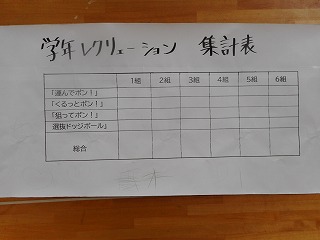 学年レクリエーション 集計表
1組 2組 3組 4組 5組 6組
「運んでポン！」
「くるっとポン！」
「狙ってポン！」
選抜ドッジボール」
総合